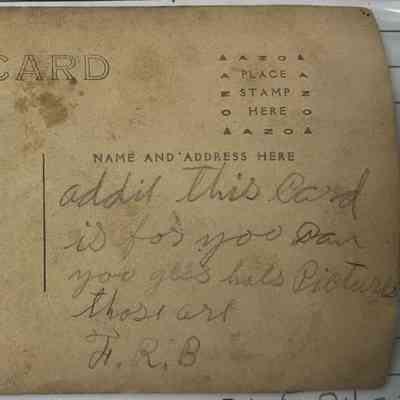 CARD
AZO
PLACE
STAMP
HERE
AZO
NAME AND ADDRESS HERE
addie this Card
is for yoo Dan
yoo gess hals Pictures
those are
F. R. B